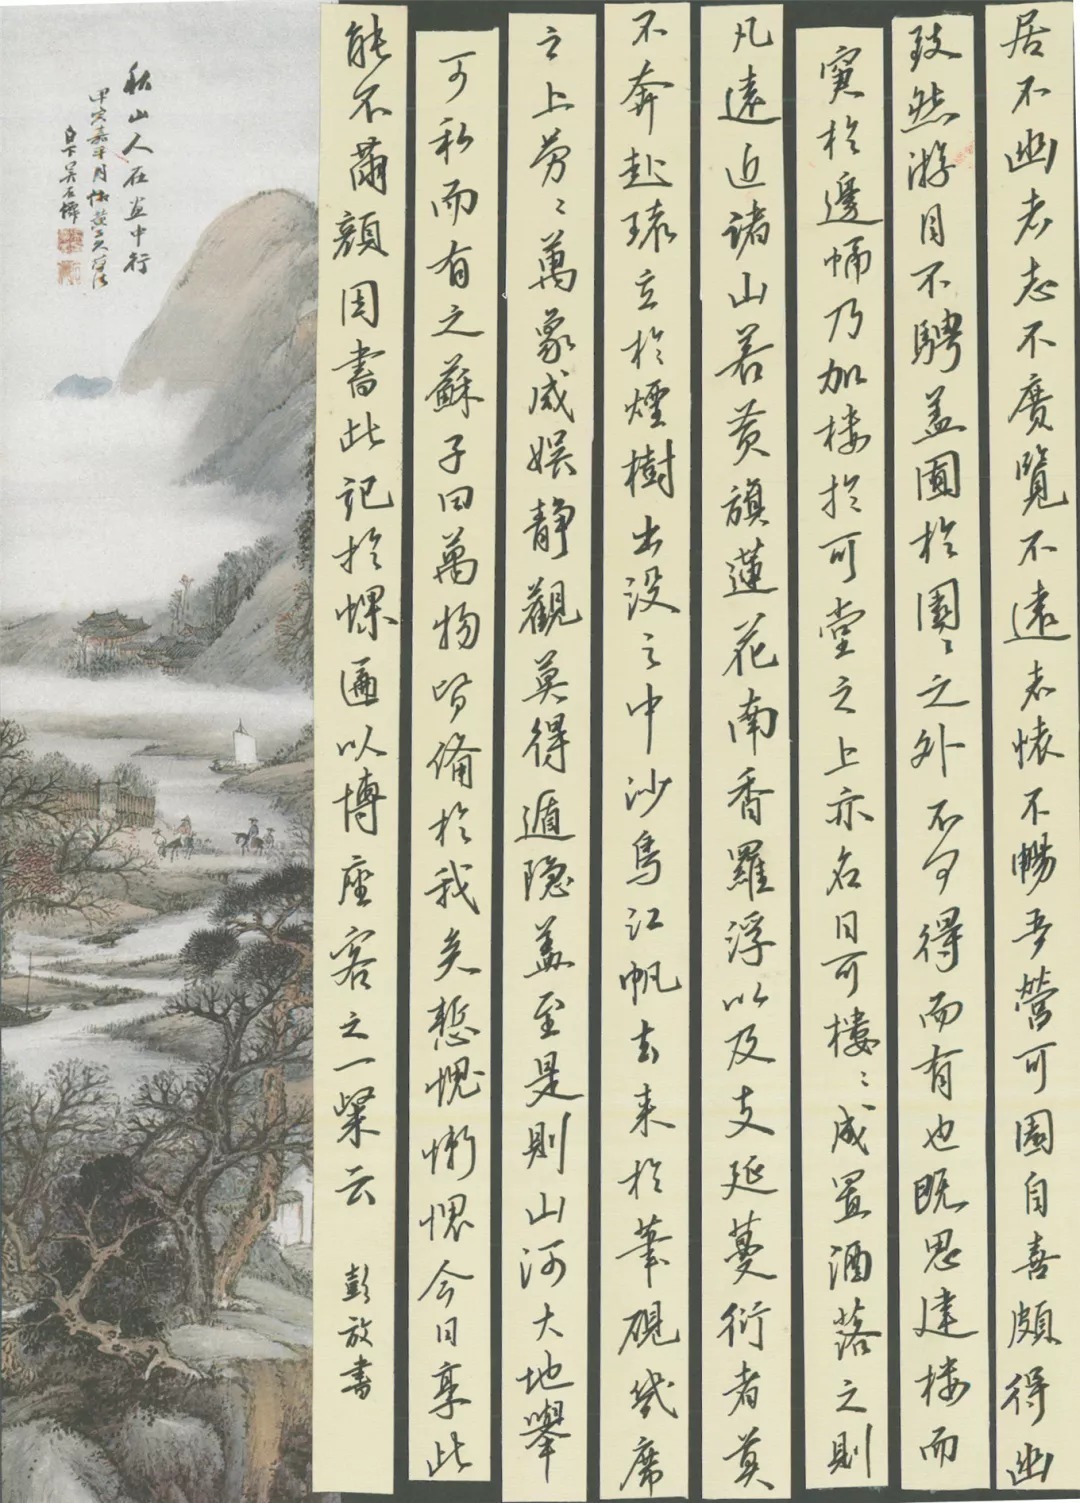 居不幽者志不廣覽不遠者懷不暢吾營可園自喜頗得幽
致然游目不騁盖囿於園〻之外不可得而有也既思建樓而
窘於邊幅乃加樓於可堂之上亦名曰可樓〻成置酒落之則
凡遠近諸山若黄旗蓮花南香羅浮以及支延蔓衍者莫
不奔赴環立於煙樹出没之中沙鳥江帆去来於筆硯几席
之上勞〻萬象咸娱静觀莫得遁隐盖至是則山河大地舉
可私而有之蘇子曰萬物皆備於我矣慙愧慚愧今日享此
能不開顔因書此記於
以博座客之一粲云 彭放書
秋山人在画中行
甲寅嘉平月
白下吴石僊